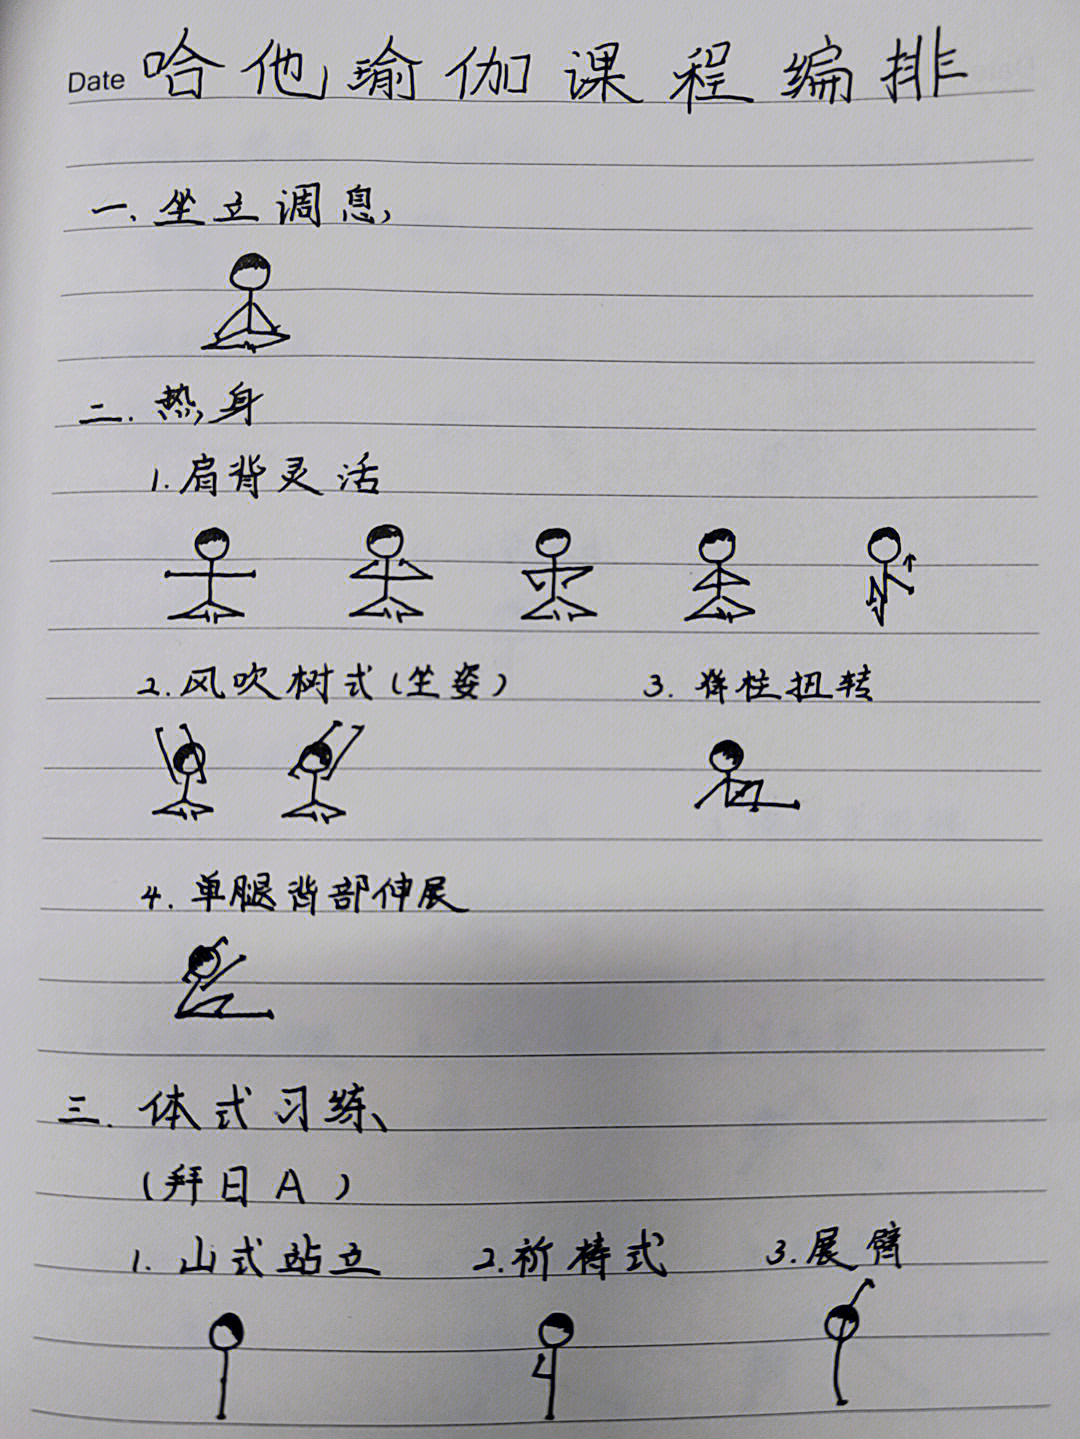 Date 哈他瑜伽课程编排
一、坐立调息
二.热身
1.肩背灵活
2.风吹树式(坐姿) 3.脊柱扭转
4.单腿背部伸展
三.体式习练
(拜日A)
1.山式站立 2.祈祷式 3.展臂